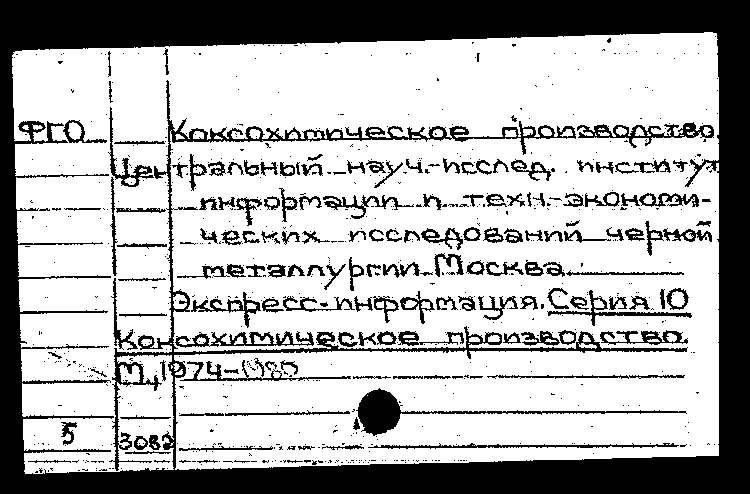 ФГО Коксохимическое производство.
Центральный науч.-исслед. институт
информации и техн.-экономи-
ческих исследований черной
металлургии. Москва.
Экспресс-информация. Серия 10
Коксохимическое производство.
М., 1974-1980
5 3082